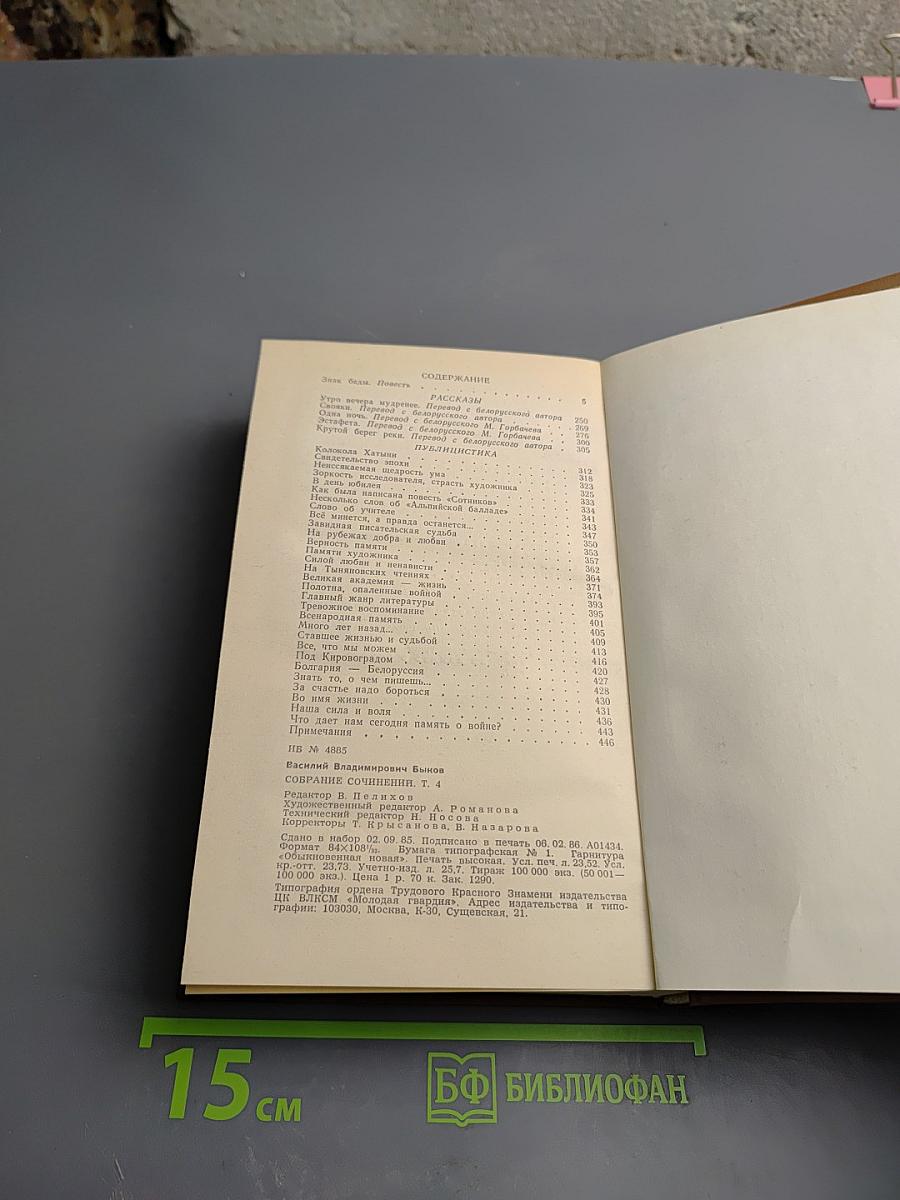 СОДЕРЖАНИЕ
Знак беды. Повесть . . . . . . . . . . 5
РАССКАЗЫ
Утро вечера мудренее. Перевод с белорусского автора 250
Свояки. Перевод с белорусского автора . . . . 269
Одна ночь. Перевод с белорусского М. Горбачева . . 276
Эстафета. Перевод с белорусского М. Горбачева . . 300
Крутой берег реки. Перевод с белорусского автора . 305
ПУБЛИЦИСТИКА
Колокола Хатыни . . . . . . . . . . 312
Свидетельство эпохи . . . . . . . . . . 318
Неиссякаемая щедрость ума . . . . . . . . 323
Зоркость исследователя, страсть художника . . . . 325
В день юбилея . . . . . . . . . . 333
Как была написана повесть «Сотников» . . . . . 334
Несколько слов об «Альпийской балладе» . . . . 341
Слово об учителе . . . . . . . . . . 343
Всё минется, а правда останется... . . . . . . 347
Завидная писательская судьба . . . . . . . 350
На рубежах добра и любви . . . . . . . . 353
Верность памяти . . . . . . . . . . 357
Памяти художника . . . . . . . . . . 362
Силой любви и ненависти . . . . . . . . 364
На Тыняновских чтениях . . . . . . . . 371
Великая академия — жизнь . . . . . . . . 374
Полотна, опаленные войной . . . . . . . . 393
Главный жанр литературы . . . . . . . . 395
Тревожное воспоминание . . . . . . . . 401
Всенародная память . . . . . . . . . . 405
Много лет назад... . . . . . . . . . . 409
Ставшее жизнью и судьбой . . . . . . . . 413
Все, что мы можем . . . . . . . . . . 416
Под Кировоградом . . . . . . . . . . 420
Болгария — Белоруссия . . . . . . . . . 427
Знать то, о чем пишешь... . . . . . . . . 428
За счастье надо бороться . . . . . . . . 430
Во имя жизни . . . . . . . . . . 431
Наша сила и воля . . . . . . . . . . 436
Что дает нам сегодня память о войне? . . . . . 443
Примечания . . . . . . . . . . 446
ИБ № 4885
Василий Владимирович Быков
СОБРАНИЕ СОЧИНЕНИЙ. Т. 4
Редактор В. Пелихов
Художественный редактор А. Романова
Технический редактор Н. Носова
Корректоры Т. Крысанова, В. Назарова
Сдано в набор 02.09.85. Подписано в печать 06.02.86. А01434.
Формат 84×108¹/₃₂. Бумага типографская № 1. Гарнитура
«Обыкновенная новая». Печать высокая. Усл. печ. л. 23,52. Усл.
кр.-отт. 23,73. Учетно-изд. л. 25,7. Тираж 100 000 экз. (50 001—
100 000 экз.). Цена 1 р. 70 к. Зак. 1290.
Типография ордена Трудового Красного Знамени издательства
ЦК ВЛКСМ «Молодая гвардия». Адрес издательства и типо-
графии: 103030, Москва, К-30, Сущевская, 21.
15 см
БФ БИБЛИОФАН